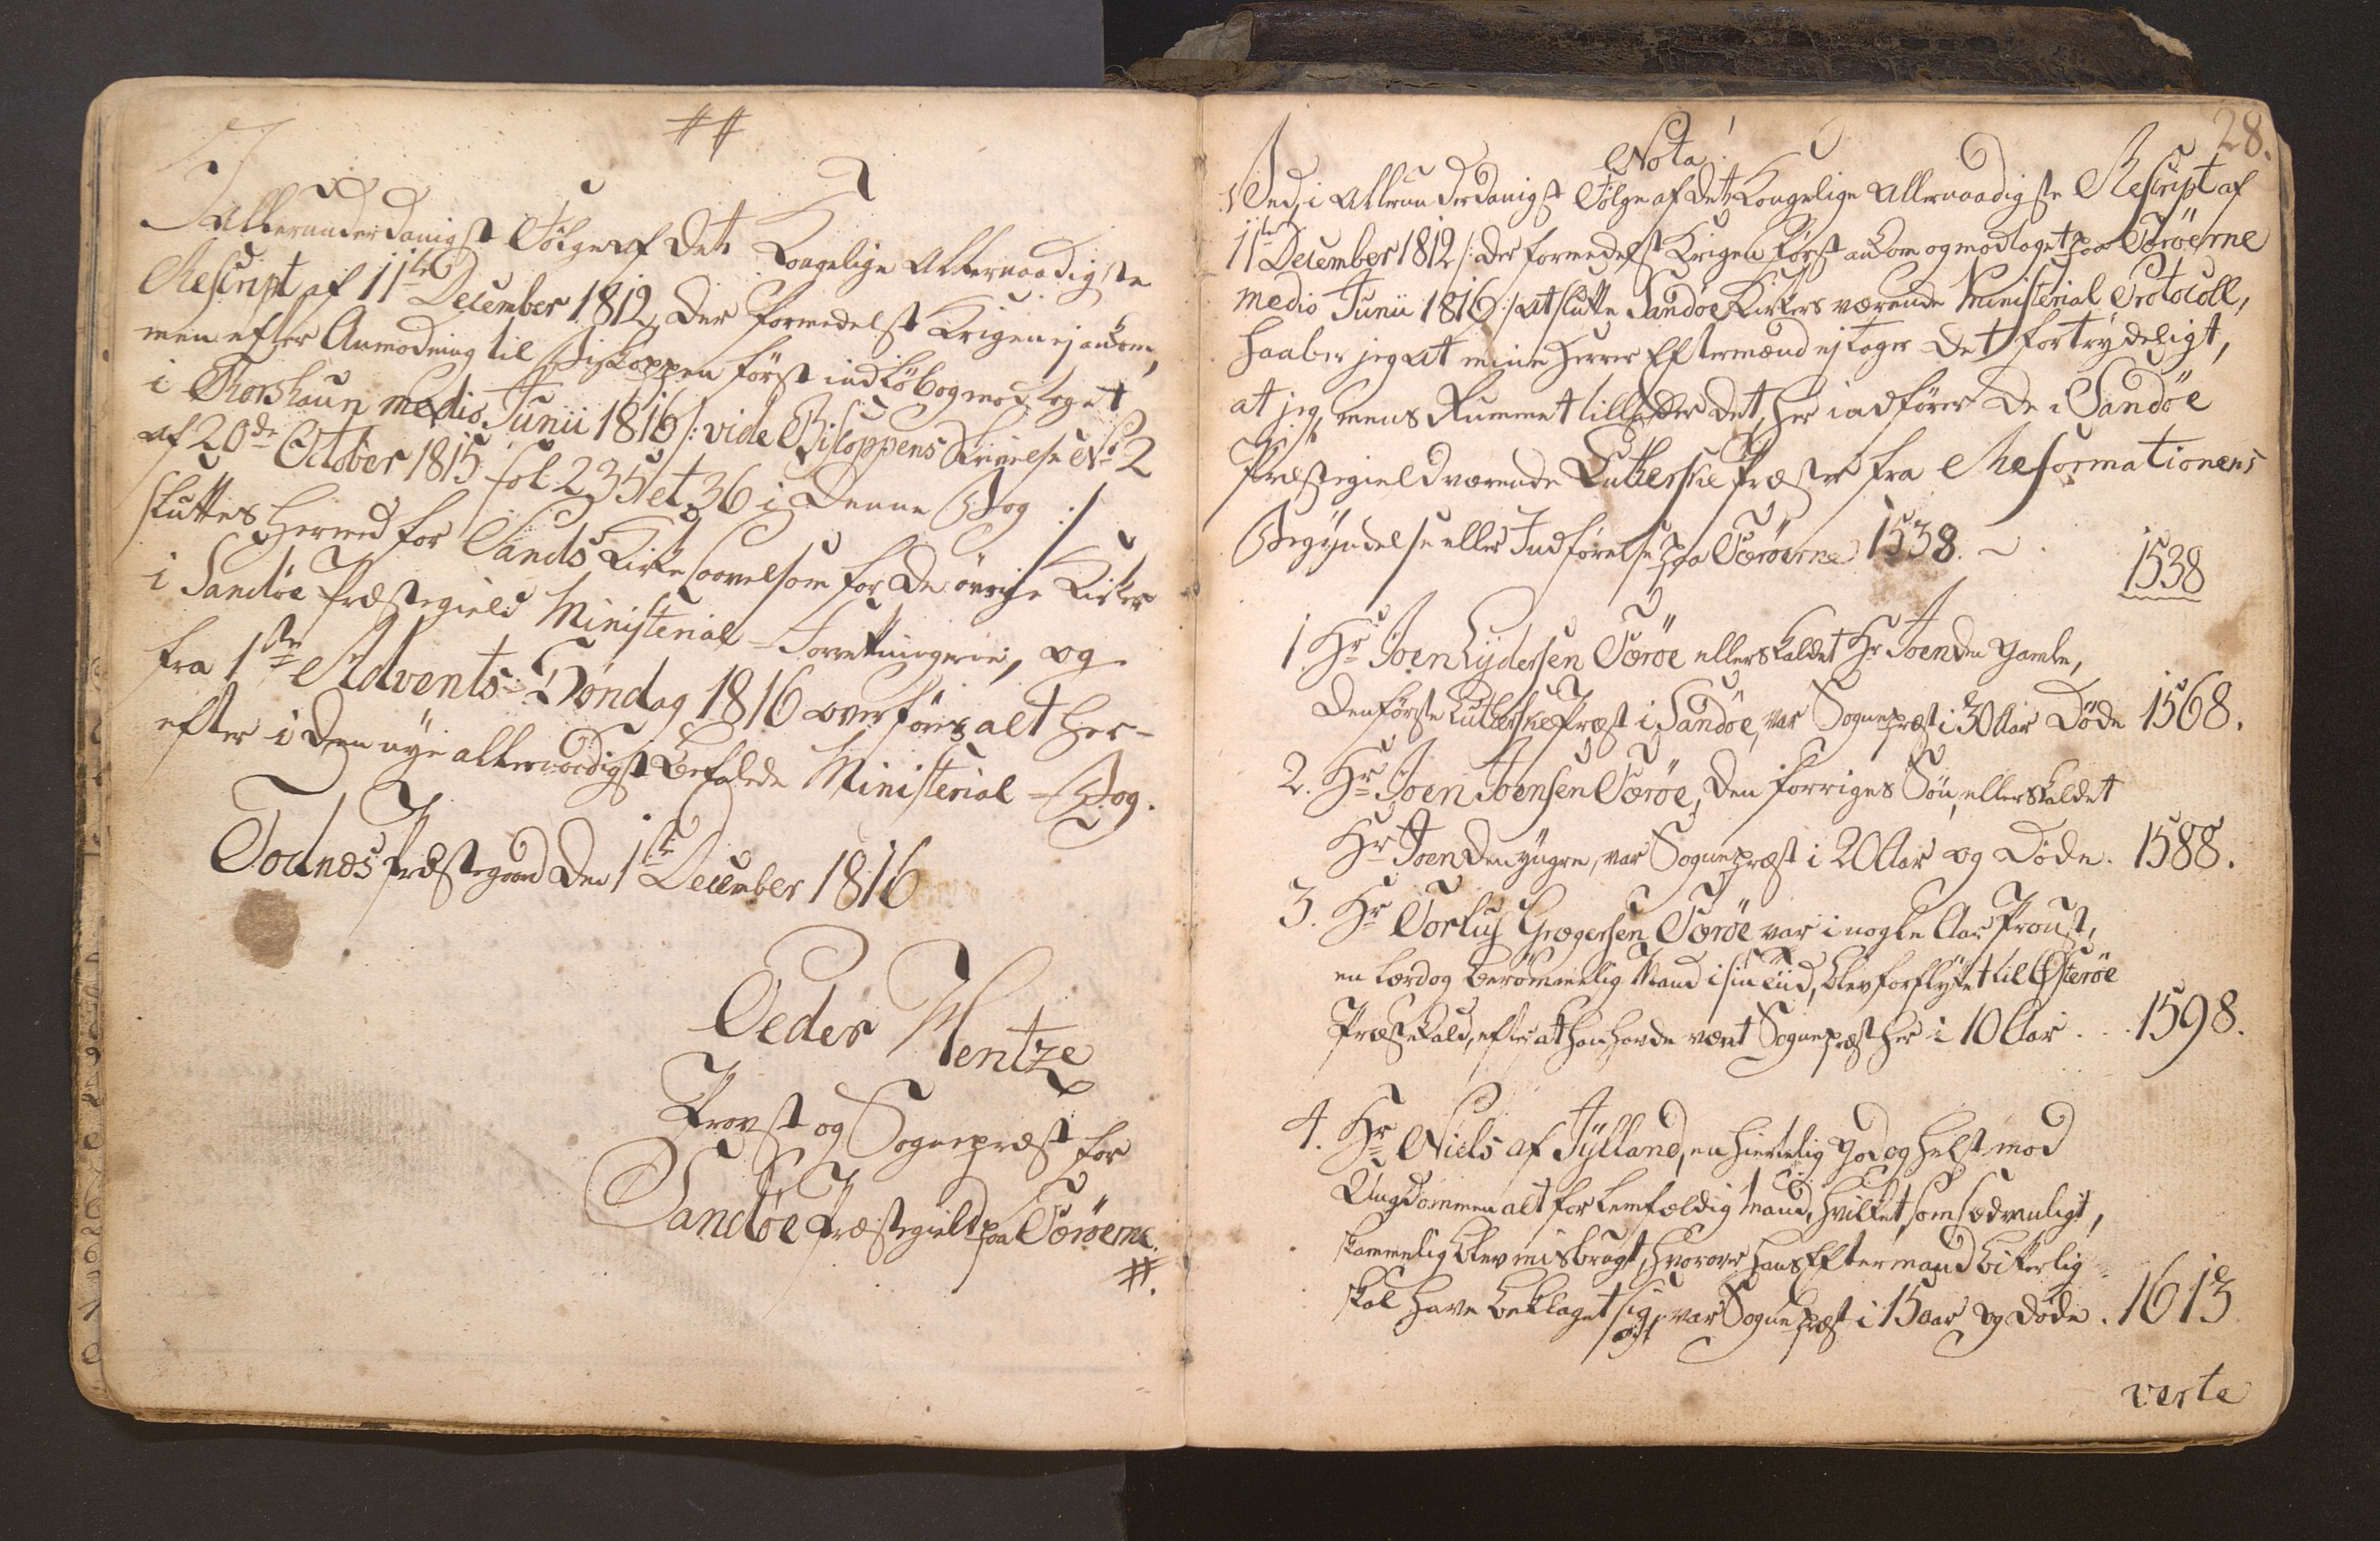 ##
I allerunderdanigst Følge af det Kongelige allernaadigste
Rescript af 11te December 1812, der formedelst Krigen ej ankom,
men efter Anmodning til Biskoppen først indløb og modtaget
i Thorshaun medio Junii 1816 /: vide Biskoppens Skrivelse No 2
af 20de October 1815 fol. 235 et 36 i denne Bog :/
sluttes hermed for Sands Kirke saavelsom for de øvrige Kirker
i Sandöe Præstegield Ministerial-Forretningerne, og
fra 1ste Advents-Söndag 1816 overføres alt her-
efter i den nye allernaadigst befalede Ministerial-Bog.
Todnæs Præstegaard den 1ste December 1816
Peder Hentze
Provst og Sognepræst for
Sandöe Præstegield paa Færöerne.
#.
28.
Nota!
Ved, i allerunderdanigst Følge af det Kongelige allernaadigste Rescript af
11te December 1812 /: der formedelst Krigen først ankom og modtaget paa Færöerne
medio Junii 1816 :/ at slutte Sandöe Kirkers værende Ministerial Protocoll,
haaber jeg at mine Herrer Eftermænd ej tager det fortrydeligt,
at jeg, mens Rummet tillader det, her indfører de i Sandöe
Præstegield værende Lutherske Præster fra Reformationens
Begyndelse eller Indførelse paa Færöerne 1538.
1538
1. Hr Joen Lydersen Færöe ellers kaldet Hr Joen den gamle,
den første Lutherske Præst i Sandöe, var Sognepræst i 30 Aar døde 1568.
2. Hr Joen Joensen Færöe, den forriges Søn, ellers kaldet
Hr Joen den yngre, var Sognepræst i 20 Aar og døde. 1588.
3. Hr Sorluf Grægersen Færöe var i nogle Aar Provst,
en lærd og berømmelig Mand i sin Tiid, blev forflyttet til Østeröe
Præstekald, efter at han havde været Sognepræst her i 10 Aar . . . 1598.
4. Hr Niels af Jylland, en hiertelig god og helst mod
Ungdommen alt for lemfældig Mand, hvilket som sædvanligt,
skammelig blev misbrugt, hvorover hans Eftermand bitterlig
skal have beklaget sig, var Sognepræst i 15 Aar og døde . 1613
verte